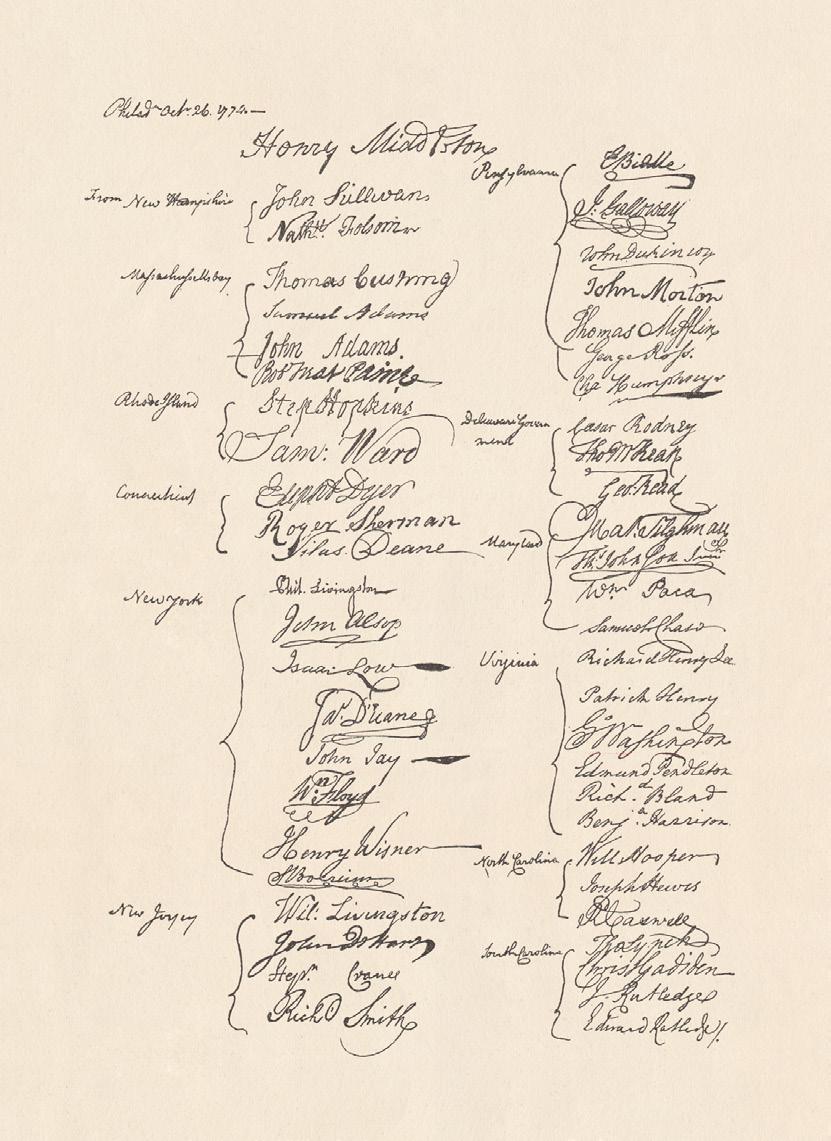 Philad.ª Oct.ʳ 26. 1774.—
Henry Middleton
From New Hampshire
John Sullivan
Nath.ˡ Folsom
Massachusetts bay
Thomas Cushing
Samuel Adams
John Adams.
Rob Treat Paine
Rhode Island
Step Hopkins
Sam: Ward
Connecticut
Elipht Dyer
Roger Sherman
Silas Deane
New York
Phil. Livingston
John Alsop
Isaac Low
Ja.ˢ Duane
John Jay
W.ᵐ Floyd
Henry Wisner
S: Boerum
New Jersey
Wil: Livingston
John De Hart
Step.ⁿ Crane
Rich.ᵈ Smith
Pensylvania
E Biddle
J. Galloway
John Dickinson
John Morton
Thomas Mifflin
George Ross.
Cha Humphreys
Delaware Govern
ment
Cæsar Rodney
Tho M:Kean
Geo: Read
Maryland
Mat. Tilghman
Th.ˢ Johnson Junʳ
W.ᵐ Paca
Samuel Chase
Virginia
Richard Henry Lee
Patrick Henry
G.º Washington
Edmund Pendleton
Rich.ᵈ Bland
Benj.ª Harrison.
North Carolina
Will Hooper
Joseph Hewes
R Caswell
South Carolina
Tho Lynch
Christ Gadsden
J. Rutledge
Edward Rutledge/.